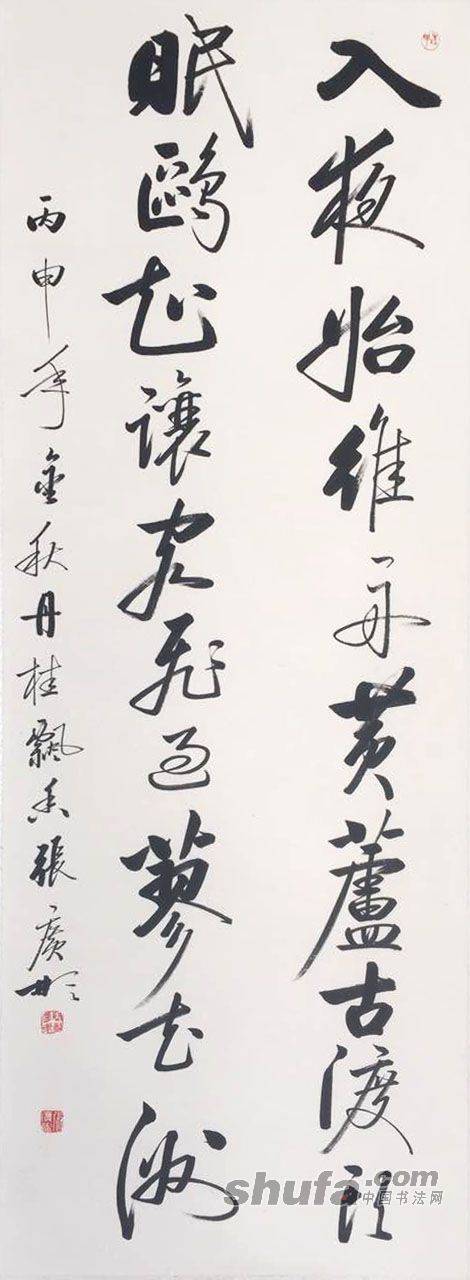 入夜始維舟黄蘆古渡頭
眠鷗知讓客飛過蓼花洲
丙申年金秋丹桂飄香張廣
shufa.com
中国书法网